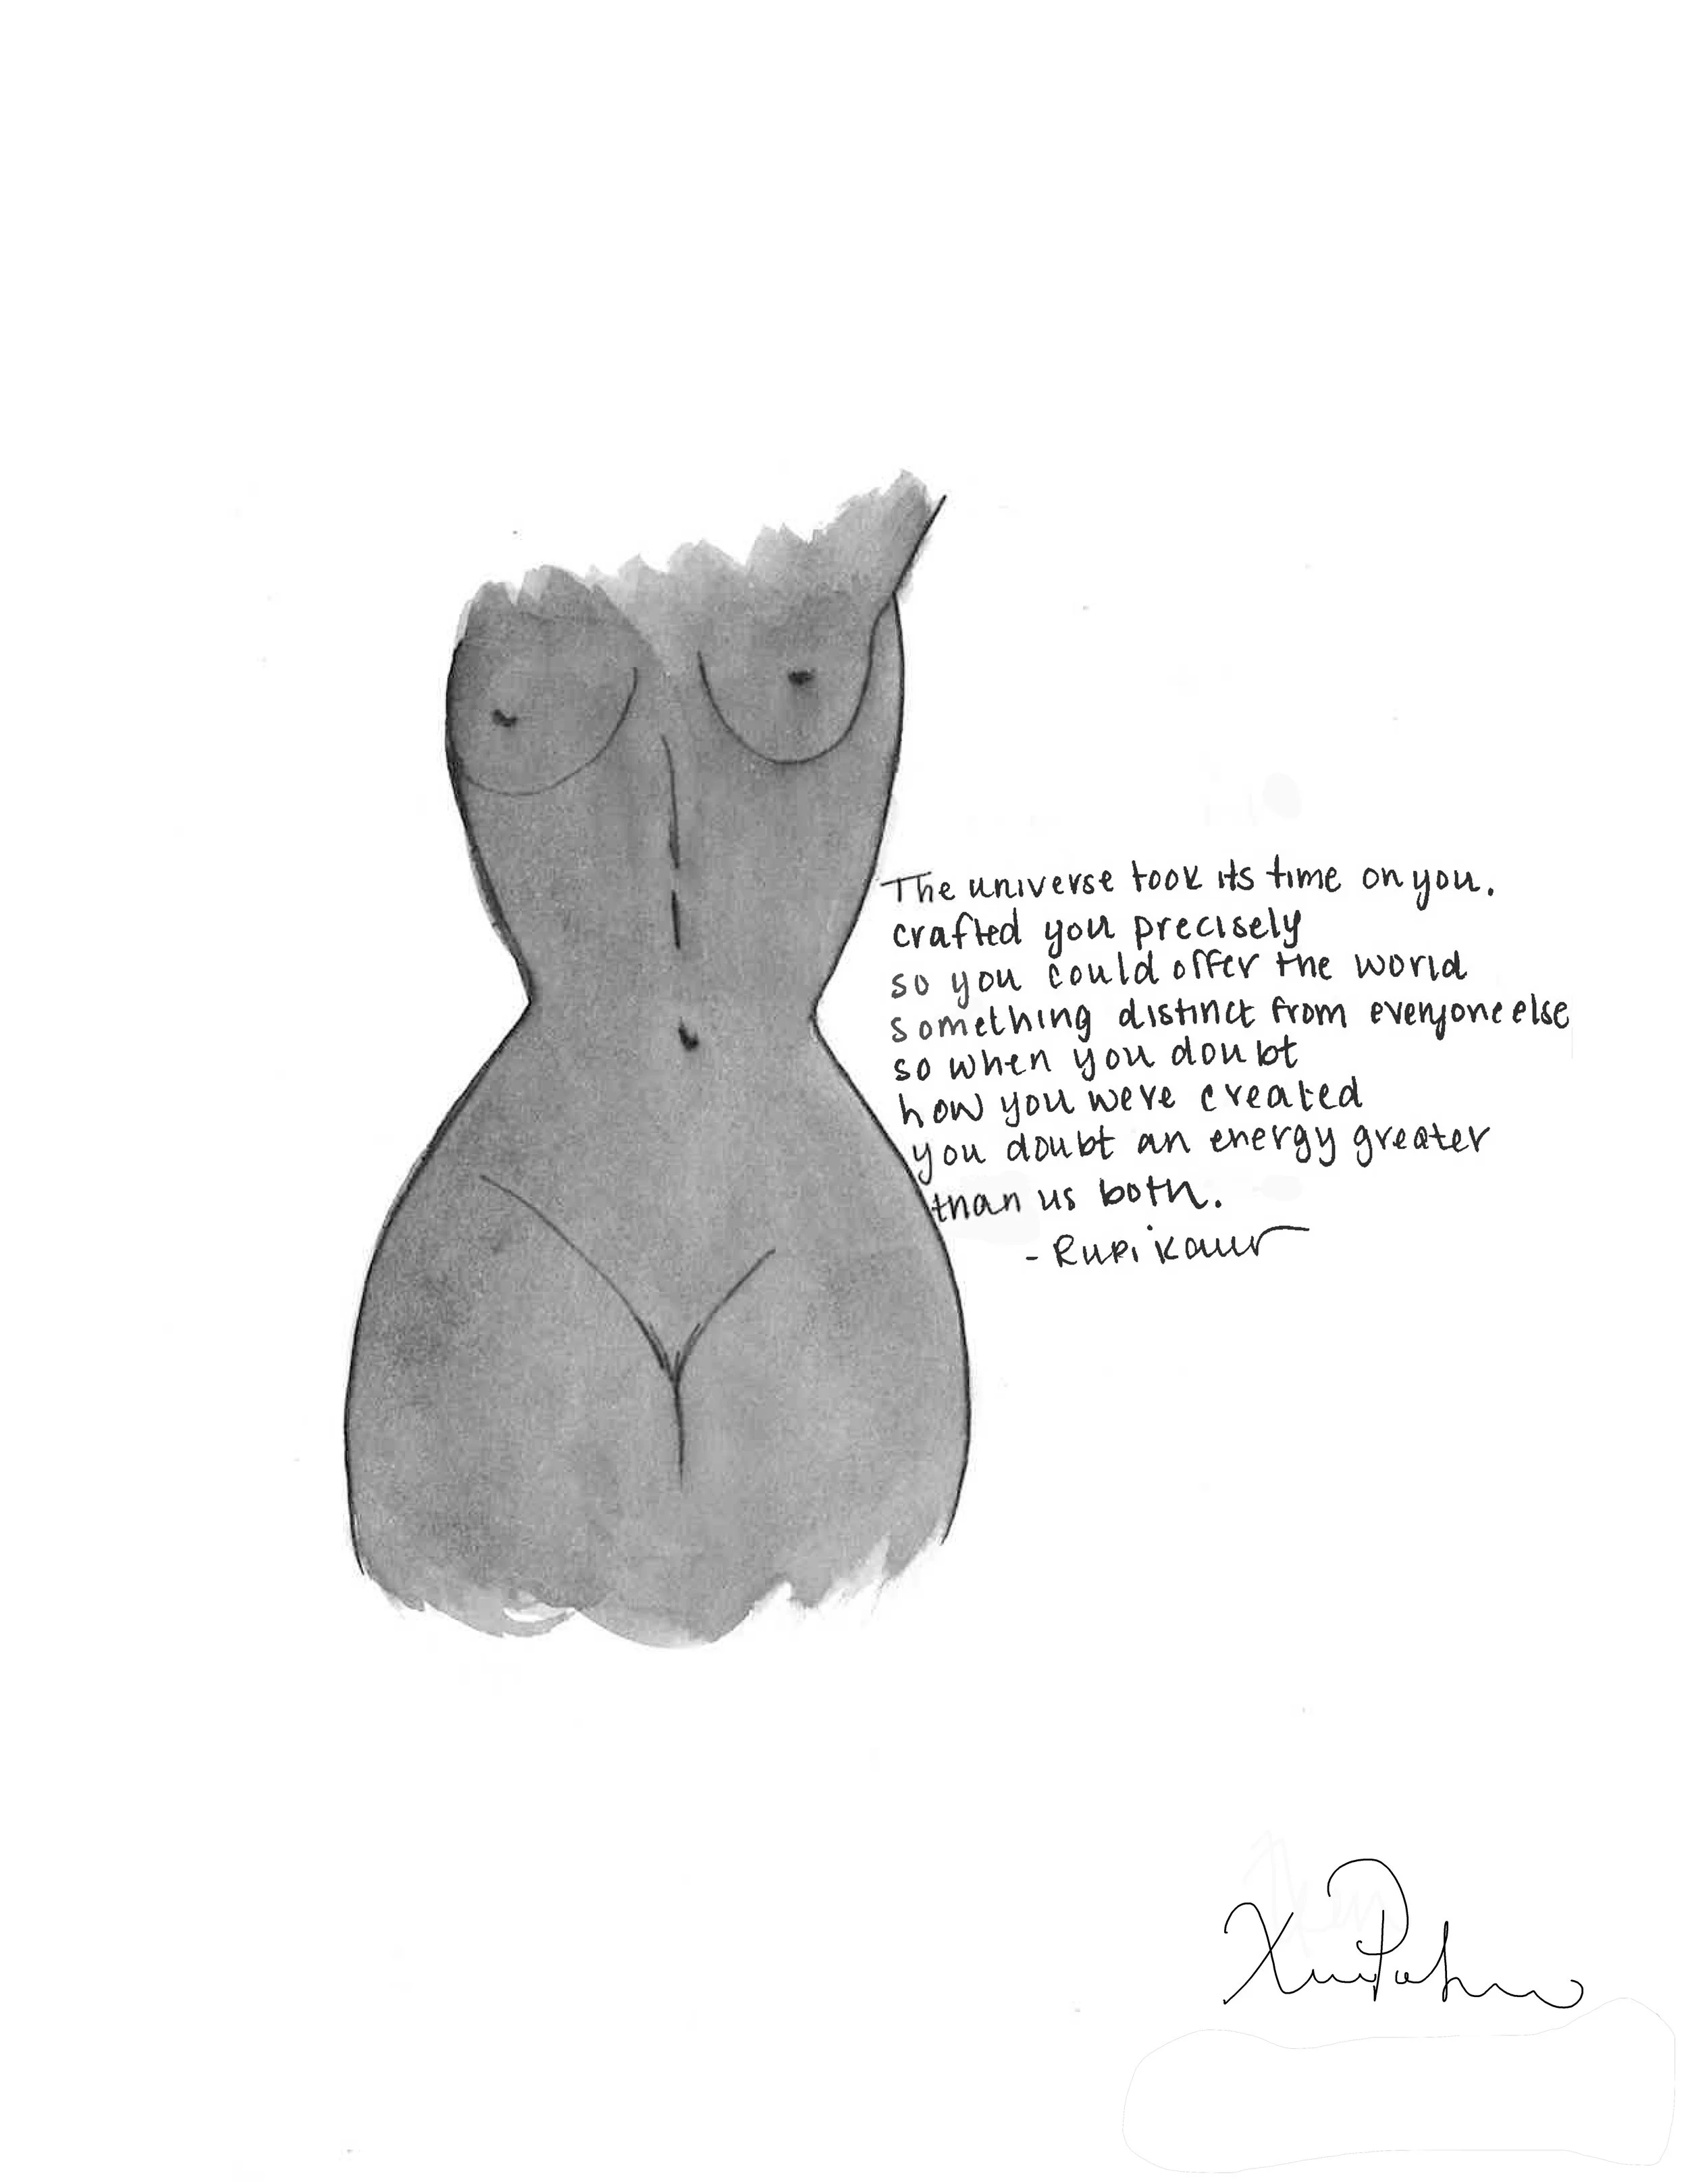 The universe took its time on you.
crafted you precisely
so you could offer the world
something distinct from everyone else
so when you doubt
how you were created
you doubt an energy greater
than us both.
- Rupi Kaur